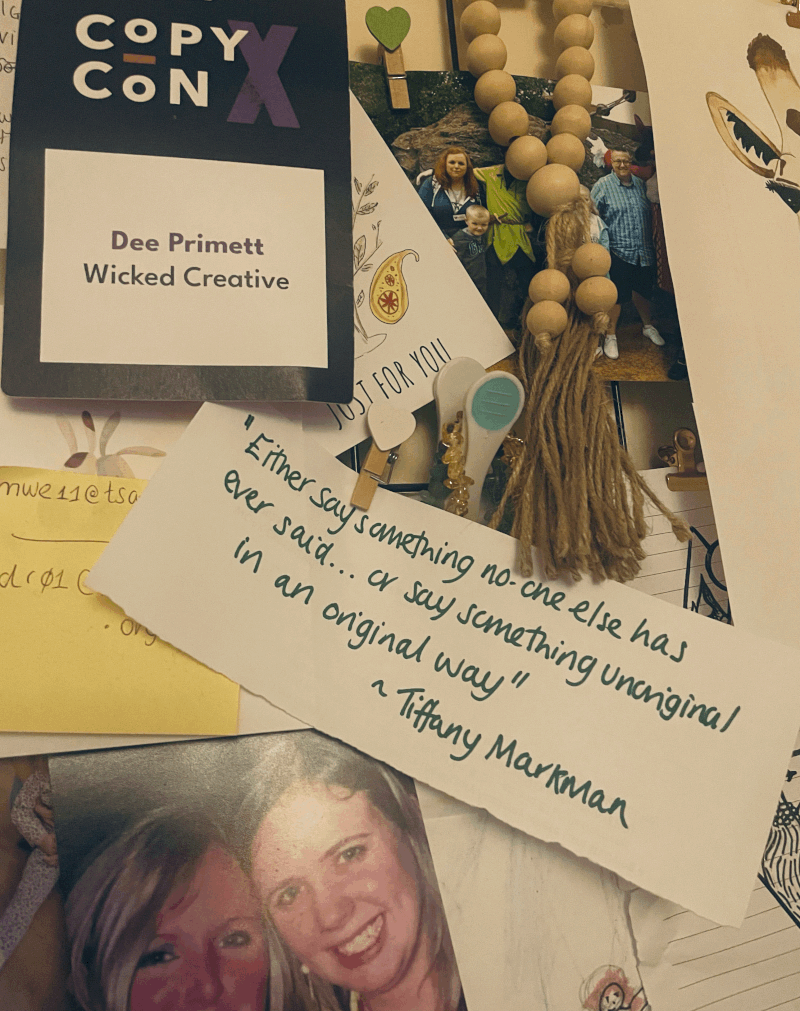 COPY
CON X
Dee Primett
Wicked Creative
JUST FOR YOU
"Either say something no-one else has
ever said... or say something unoriginal
in an original way"
~ Tiffany Markman